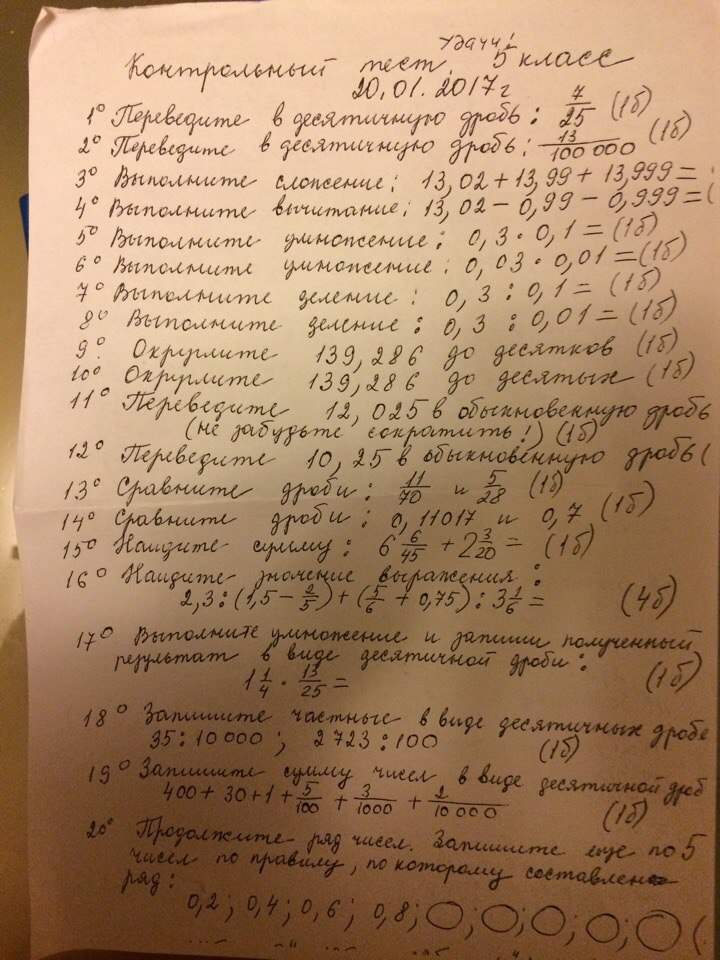 Удачи!
Контрольный тест. 5 класс
20.01.2017 г
1° Переведите в десятичную дробь: 7/25 (1б)
2° Переведите в десятичную дробь: 13/100 000 (1б)
3° Выполните сложение: 13,02 + 13,99 + 13,999 =
4° Выполните вычитание: 13,02 - 0,99 - 0,999 = (
5° Выполните умножение: 0,3 · 0,1 = (1б)
6° Выполните умножение: 0,03 · 0,01 = (1б)
7° Выполните деление: 0,3 : 0,1 = (1б)
8° Выполните деление: 0,3 : 0,01 = (1б)
9° Округлите 139,286 до десятков (1б)
10° Округлите 139,286 до десятых (1б)
11° Переведите 12,025 в обыкновенную дробь
(не забудьте сократить!) (1б)
12° Переведите 10,25 в обыкновенную дробь (
13° Сравните дроби: 11/70 и 5/28 (1б)
14° Сравните дроби: 0,11017 и 0,7 (1б)
15° Найдите сумму: 6 6/45 + 2 3/20 = (1б)
16° Найдите значение выражения:
2,3 : (1,5 - 2/5) + (5/6 + 0,75) : 3 1/6 = (4б)
17° Выполните умножение и запиши полученный
результат в виде десятичной дроби:
1 1/4 · 13/25 = (1б)
18° Запишите частные в виде десятичных дробе
35 : 10 000 ; 2 723 : 100 (1б)
19° Запишите сумму чисел в виде десятичной дроб
400 + 30 + 1 + 5/100 + 3/1000 + 2/10 000 (1б)
20° Продолжите ряд чисел. Запишите еще по 5
чисел по правилу, по которому составлен
ряд:
0,2 ; 0,4 ; 0,6 ; 0,8 ; ◯ ; ◯ ; ◯ ; ◯ ; ◯ (